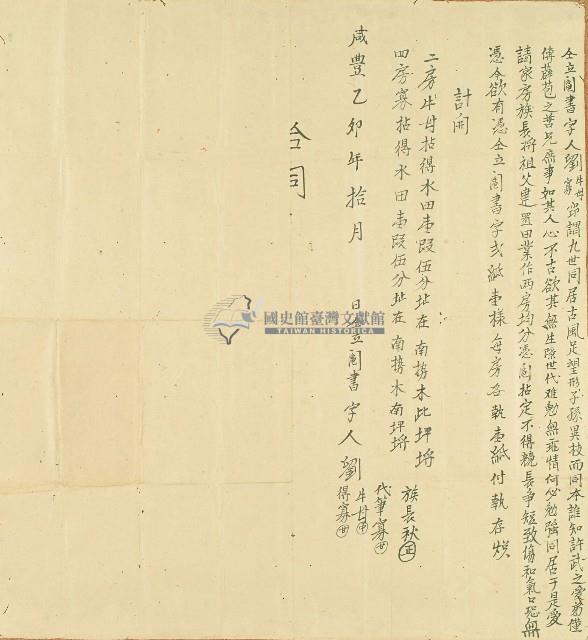 仝立鬮書字人劉牛母寡嘗謂九世同居古風足望形子孫異枝而同本誰知許武之愛弟僅
傳薛苞之苦兄齊事如其人心不古欲其無生隙世代难勉無班情何必勉強同居于是爰
請家房族長將祖父建置田業作两房均分憑鬮拈定不得競長爭短致傷和氣口恐無
憑今欲有憑仝立鬮書字弍紙壹樣每房各執壹紙付執存炤
計開
二房牛母拈得水田壹段伍分址在南搒本比坪埒
四房寡拈得水田壹段伍分址在南搒水南坪埒
咸豐乙卯年拾月 日立鬮書字人劉
牛母
得寡
代筆寡
族長秋
正
合同
國史館臺灣文獻館
TAIWAN HISTORICA